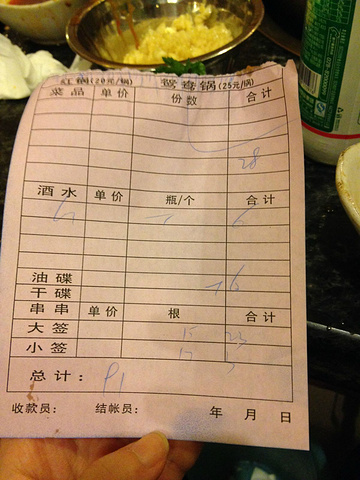 红锅(20元/锅) 鸳鸯锅(25元/锅)
菜品 单价 份数 合计
28
酒水 单价 瓶/个 合计
6
油碟 6
干碟
串串 单价 根 合计
大签 15
小签
总计: 91
收款员: 结帐员: 年 月 日